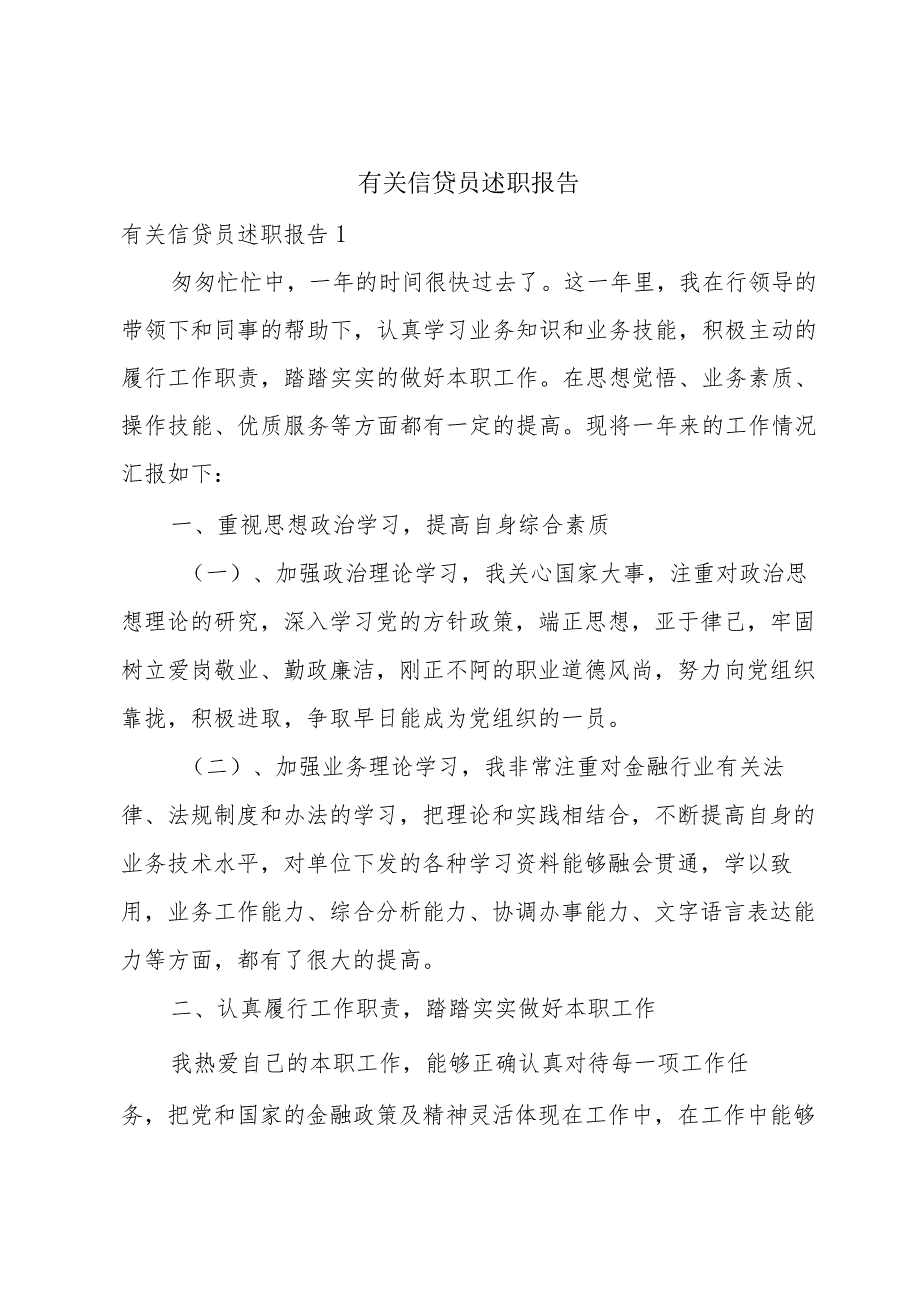 有关信贷员述职报告
有关信贷员述职报告1
匆匆忙忙中，一年的时间很快过去了。这一年里，我在行领导的
带领下和同事的帮助下，认真学习业务知识和业务技能，积极主动的
履行工作职责，踏踏实实的做好本职工作。在思想觉悟、业务素质、
操作技能、优质服务等方面都有一定的提高。现将一年来的工作情况
汇报如下：
一、重视思想政治学习，提高自身综合素质
（一）、加强政治理论学习，我关心国家大事，注重对政治思
想理论的研究，深入学习党的方针政策，端正思想，亚于律己，牢固
树立爱岗敬业、勤政廉洁，刚正不阿的职业道德风尚，努力向党组织
靠拢，积极进取，争取早日能成为党组织的一员。
（二）、加强业务理论学习，我非常注重对金融行业有关法
律、法规制度和办法的学习，把理论和实践相结合，不断提高自身的
业务技术水平，对单位下发的各种学习资料能够融会贯通，学以致
用，业务工作能力、综合分析能力、协调办事能力、文字语言表达能
力等方面，都有了很大的提高。
二、认真履行工作职责，踏踏实实做好本职工作
我热爱自己的本职工作，能够正确认真对待每一项工作任
务，把党和国家的金融政策及精神灵活体现在工作中，在工作中能够